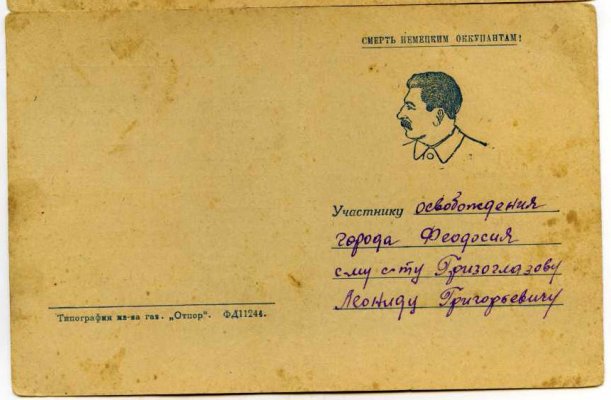 СМЕРТЬ НЕМЕЦКИМ ОККУПАНТАМ!
Участнику освобождения
города Феодосия
с-му с-ту Гризоглазову
Леониду Григорьевичу
Типография из-ва газ. „Отпор". ФД11244.